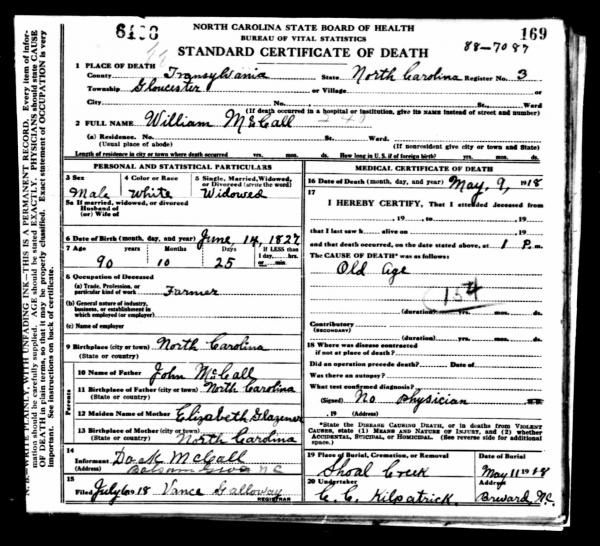 NORTH CAROLINA STATE BOARD OF HEALTH
BUREAU OF VITAL STATISTICS
STANDARD CERTIFICATE OF DEATH
169
88-7087
1 PLACE OF DEATH
County Transylvania State North Carolina Register No. 3
Township Gloucester or Village
City No. St. Ward
(If death occurred in a hospital or institution, give its NAME instead of street and number)
2 FULL NAME William McCall
(a) Residence. No. St. Ward.
(Usual place of abode) (If nonresident give city or town and State)
Length of residence in city or town where death occurred yrs. mos. ds. How long in U. S., if of foreign birth? yrs. mos. ds.
PERSONAL AND STATISTICAL PARTICULARS
3 Sex 4 Color or Race 5 Single, Married, Widowed, or Divorced (write the word)
Male White Widowed
5a If married, widowed, or divorced
Husband of
(or) Wife of
6 Date of Birth (month, day, and year) June 14, 1827
7 Age years Months Days If LESS than 1 day, hrs. or min.
90 10 25
8 Occupation of Deceased
(a) Trade, Profession, or particular kind of work Farmer
(b) General nature of industry, business, or establishment in which employed (or employer)
(c) Name of employer
9 Birthplace (city or town) North Carolina
(State or country)
Parents
10 Name of Father John McCall
11 Birthplace of Father (city or town) North Carolina
(State or country)
12 Maiden Name of Mother Elizabeth Glazener
13 Birthplace of Mother (city or town)
(State or country) North Carolina
14
Informant Dock McCall
(Address) Balsam Grove NC
15
Filed July 10 18 Vance Galloway
REGISTRAR
MEDICAL CERTIFICATE OF DEATH
16 Date of Death (month, day, and year) May, 9, 1918
17
I HEREBY CERTIFY, That I attended deceased from
, 19 , to , 19
that I last saw h alive on , 19
and that death occurred, on the date stated above, at 1 P. m.
The CAUSE OF DEATH* was as follows:
Old Age
154
(duration) yrs. mos. ds.
Contributory
(SECONDARY)
(duration) yrs. mos. ds.
18 Where was disease contracted
if not at place of death?
Did an operation precede death? Date of
Was there an autopsy?
What test confirmed diagnosis?
(Signed) No Physician M. D.
, 19 (Address)
*State the DISEASE CAUSING DEATH, or in deaths from VIOLENT CAUSES, state (1) MEANS AND NATURE OF INJURY, and (2) whether ACCIDENTAL, SUICIDAL, or HOMICIDAL. (See reverse side for additional space.)
19 Place of Burial, Cremation, or Removal Date of Burial
Shoal Creek May 11 1918
20 Undertaker Address
C. C. Kilpatrick Brevard, N.C.
N. B.—WRITE PLAINLY, WITH UNFADING INK—THIS IS A PERMANENT RECORD. Every item of information should be carefully supplied. AGE should be stated EXACTLY. PHYSICIANS should state CAUSE OF DEATH in plain terms, so that it may be properly classified. Exact statement of OCCUPATION is very important. See instructions on back of certificate.